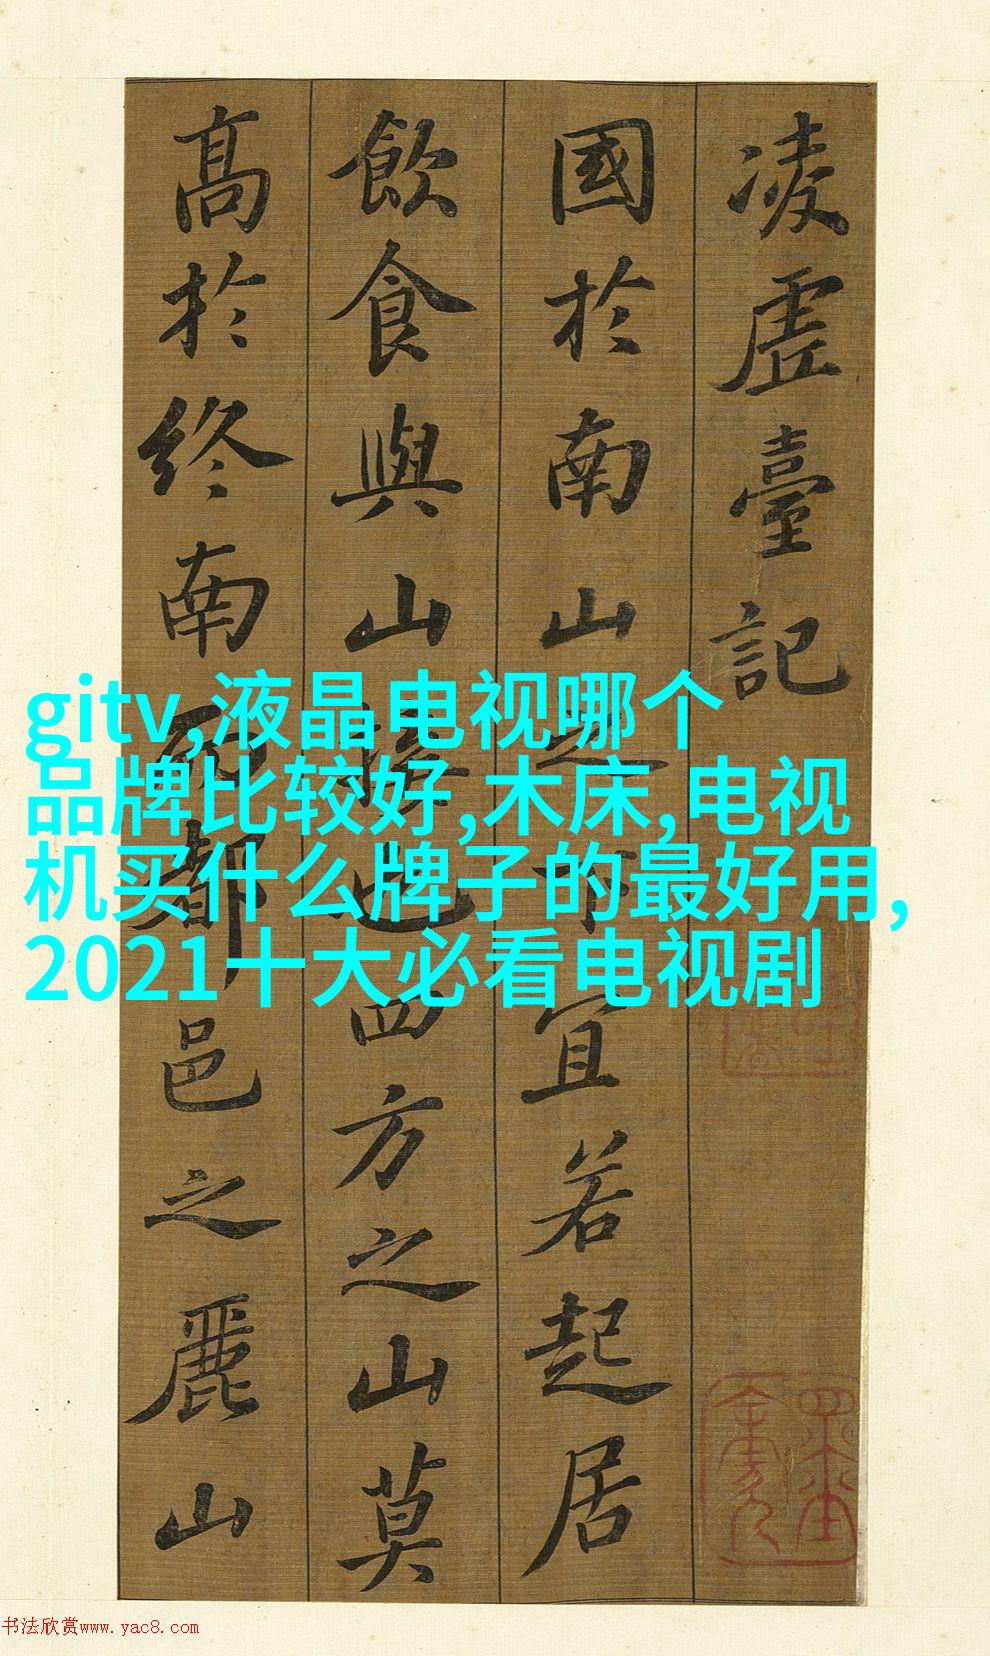 凌虛臺記
國於南山之下宜若起居
飲食與山接也四方之山莫
高於終南而都邑之麗山
gitv,液晶电视哪个
品牌比较好,木床,电视
机买什么牌子的最好用,
2021十大必看电视剧
书法欣赏www.yac8.com